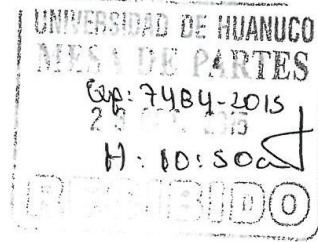 UNIVERSIDAD DE HUANUCO
MESA DE PARTES
Exp: 7484-2015
2 2015
H: 10:50a
RECIBIDO